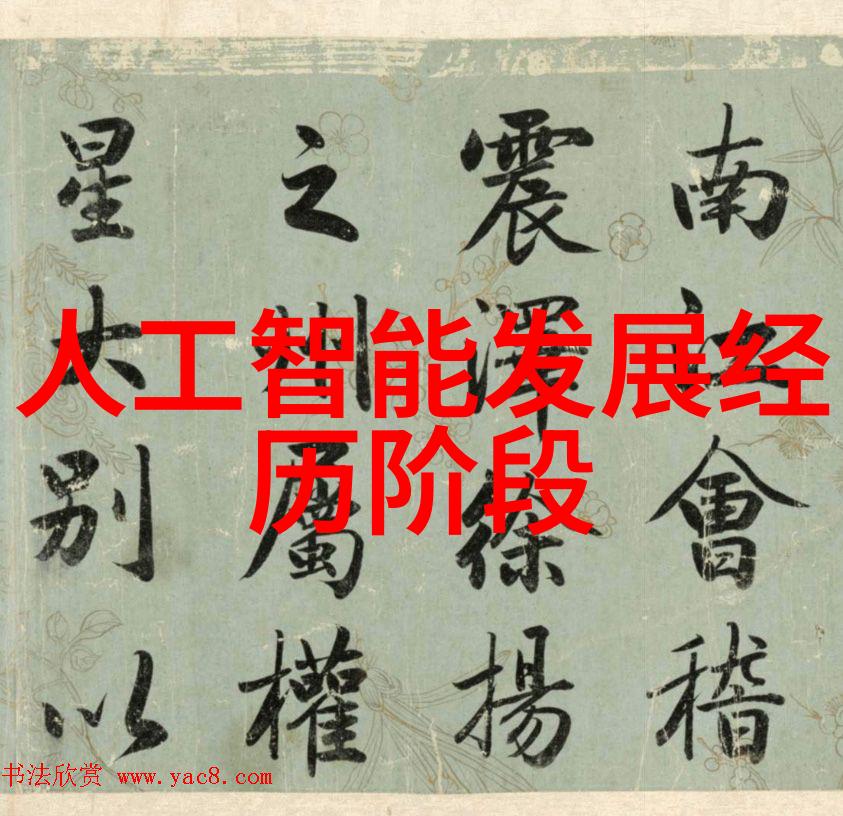 南江會稽
震澤徐揚
之州屬權
星大別以
人工智能发展经
历阶段
书法欣赏 www.yac8.com